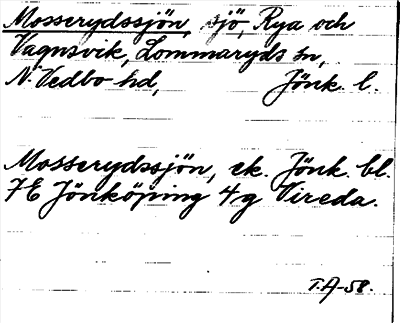 Mosserydssjön, sjö, Rya och
Vagnsvik, Lommaryds sn,
N. Vedbo hd, Jönk. l.
Mosserydssjön, ek. Jönk. bl.
7E Jönköping 4g Vireda.
T.A-58.